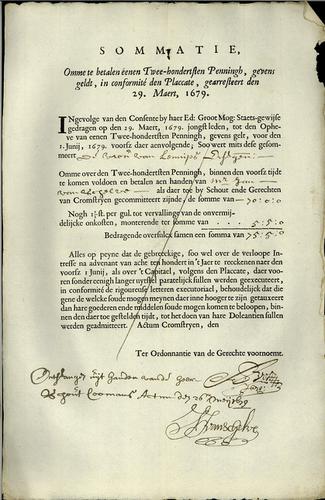 SOMMATIE,
Omme te betalen eenen Twee-hondertsten Penningh, gevens
geldt, in conformité den Placcate, gearresteert den
29. Maert, 1679.
INgevolge van den Consente by haer Ed: Groot Mog: Staets-gewijse
gedragen op den 29. Maert, 1679. jongst leden, tot den Ophe-
ve van eenen Twee-hondertsten Penningh, gevens gelt, voor den
1. Junij, 1679 voorts daer aenvolgende; Soo wert mits dese gesom-
meert de
Omme over den Twee-hondertsten Penningh, binnen den voorsz tijde
te komen voldoen en betalen aen handen van Mr Jan
als daer toe by Schout ende Gerechten
van Cromstryen gecommitteert zijnde, de somme van 70:0:0
Nogh 1½ st. per gul. tot vervallinge van de onvermij-
delijcke onkosten, monterende ter somme van . . . 5:5:0
Bedragende oversulcx samen een somma van 75:5:0
Alles op peyne dat de gebreeckige, soo wel de verloope Inte-
resse na advenant van acht ten hondert in 't Jaer te reeckenen naer den
voorsz 1 Junij, als over 't Capitael, volgens den Placcate, daer voo-
ren sonder eenigh langer uytstel paratelijck sullen werden geëxecuteert,
in conformité de rigoureuse letteren executoriael, behoudelijck dat die
gene de welcke soude mogen meynen daer inne hooger te zijn getauxeert
dan hare goederen ende middelen soude mogen komen te beloopen, bin-
nen den daer toe gestelden tijdt, tot het doen van hare Doleantien sullen
werden geadmitteert. Actum Cromstryen, den
Ter Ordonnantie van de Gerechte voornoemt.
Ontfangen uijt handen vande heer
Actum den 26 Meij 1679